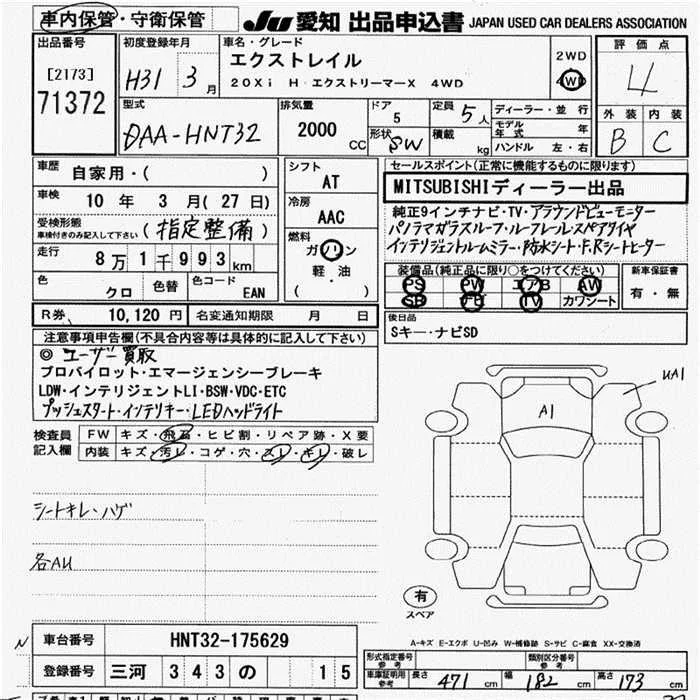 車内保管・守衛保管
JU 愛知 出品申込書 JAPAN USED CAR DEALERS ASSOCIATION
出品番号
[2173]
71372
初度登録年月
H31 3月
車名・グレード
エクストレイル
20Xi H エクストリーマーX 4WD
2WD
4WD
評価点
4
外装 内装
B C
型式
DAA-HNT32
排気量
2000 CC
ドア
5
形状 SW
定員 5人
積載 kg
ディーラー・並行
モデル年式 年
ハンドル 左・右
車歴
自家用・( )
車検 10年 3月(27日)
受検形態
車検付きのみ記入して下さい
(指定整備)
走行 8万1千993km
色 クロ 色替 色コード EAN
シフト
AT
冷房
AAC
燃料
ガソリン
軽・油
( )
セールスポイント(正常に機能するものに限ります)
MITSUBISHIディーラー出品
純正9インチナビ・TV・アラウンドビューモニター
パノラマガラスルーフ・ルーフレール・スペアタイヤ
インテリジェントルームミラー・防水シート・F.Rシートヒーター
装備品(純正品に限り○をつけてください)
PS PW エアB AW
SR ナビ TV カワシート
新車保証書
有・無
R券 10,120円 名変通知期限 月 日
後日品
Sキー・ナビSD
注意事項申告欄(不具合内容等は具体的に記入して下さい)
◎ユーザー買取
プロパイロット・エマージェンシーブレーキ
LDW・インテリジェントLI・BSW・VDC・ETC
プッシュスタート・インテリキー・LEDヘッドライト
検査員記入欄
FW キズ・飛石・ヒビ割・リペア跡・X要
内装 キズ・汚レ・コゲ・穴・スレ・キレ・破レ
シートキレ・ハゲ
各AU
A1
UA1
有
スペア
A-キズ E-エクボ U-凹み W-補修跡 S-サビ C-腐食 XX-交換済
N
車台番号 HNT32-175629
登録番号 三河 343 の 15
形式指定番号 参考
類別区分番号 参考
車庫証明用参考 長さ 471cm 幅 182cm 高さ 173cm